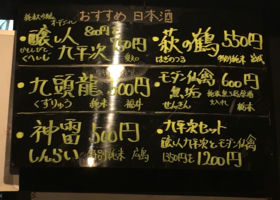 おすすめ 日本酒
醸し人
九平次
850円
萩の鶴 550円
はぎのつる 特別純米 宮城
九頭龍 500円
くずりゅう 純米 福井
モダン仙禽 600円
無垢
せんきん 栃木
神雷 500円
しんらい 特別純米 広島
九平次セット
醸し人九平次とモダン仙禽
1350円を1200円